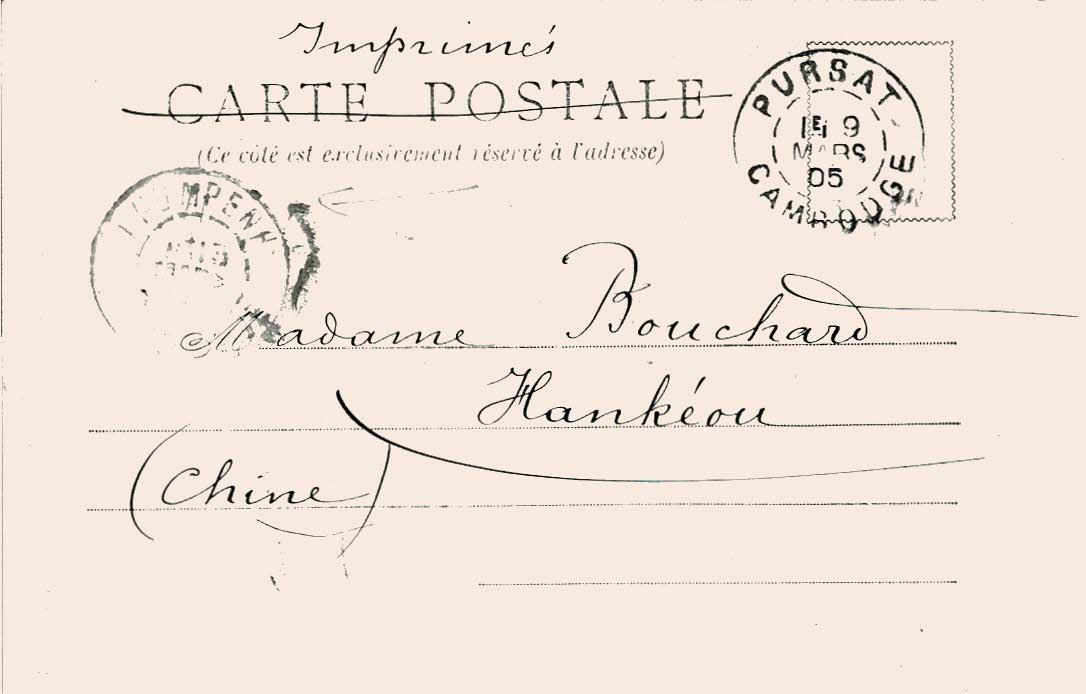 Imprimés
CARTE POSTALE
(Ce côté est exclusivement réservé à l'adresse)
PURSAT
9
MARS
05
CAMBODGE
PNOMPENH
Madame Bouchard
Hankéou
(Chine)